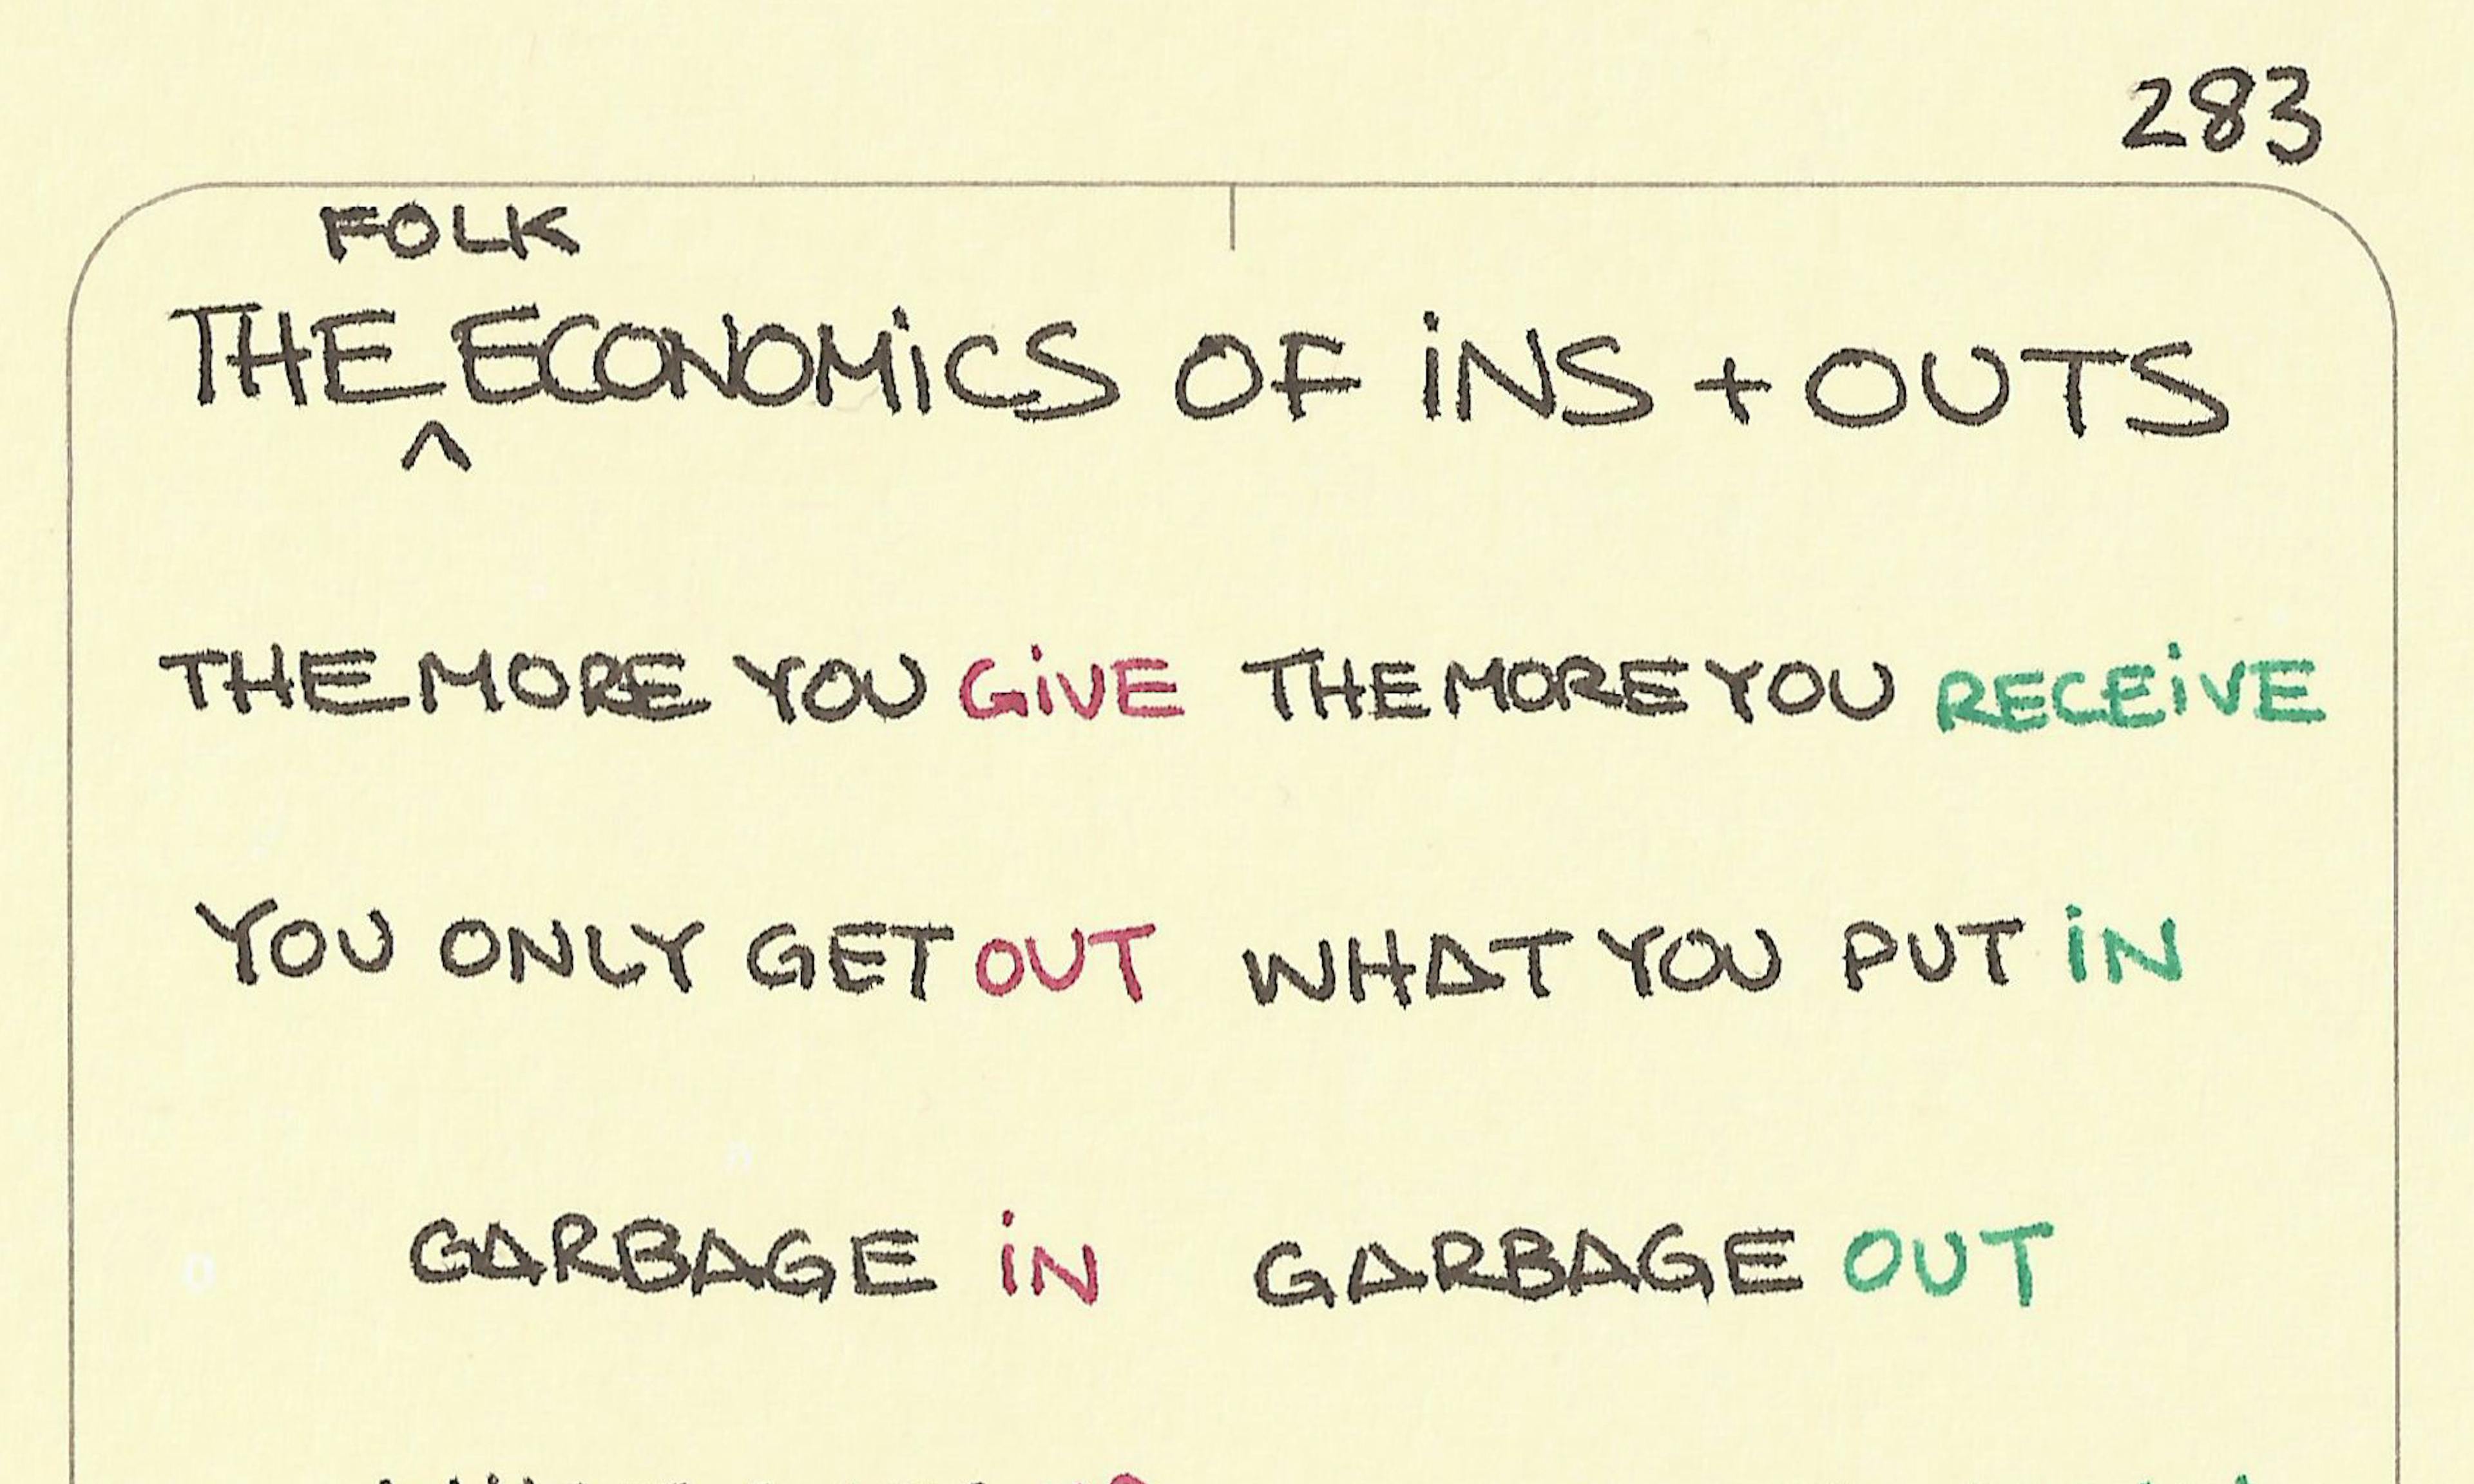 283
FOLK
THE ^ ECONOMICS OF INS + OUTS
THE MORE YOU GIVE THE MORE YOU RECEIVE
YOU ONLY GET OUT WHAT YOU PUT IN
GARBAGE IN GARBAGE OUT